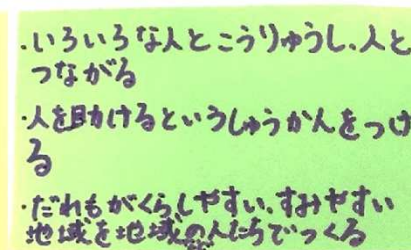 ・いろいろな人とこうりゅうし、人と
つながる
・人を助けるというしゅうかんをつけ
る
・だれもがくらしやすい、すみやすい
地域を地域の人たちでつくる